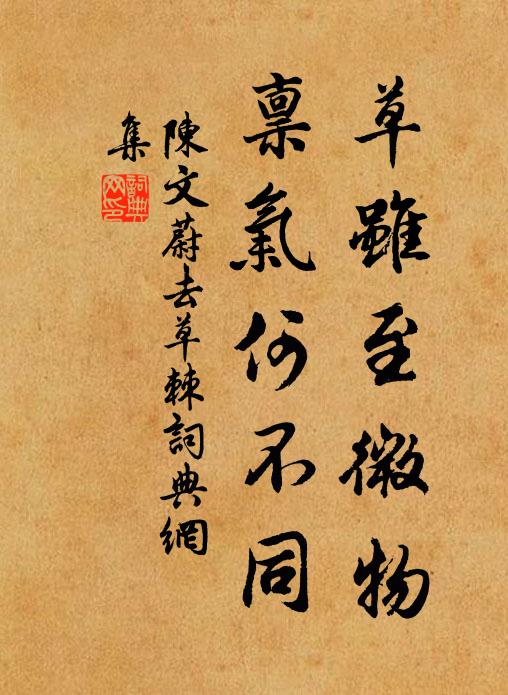 草雖至微物
稟氣何不同
陳文蔚去草棘詞典網
集
詞典
网印